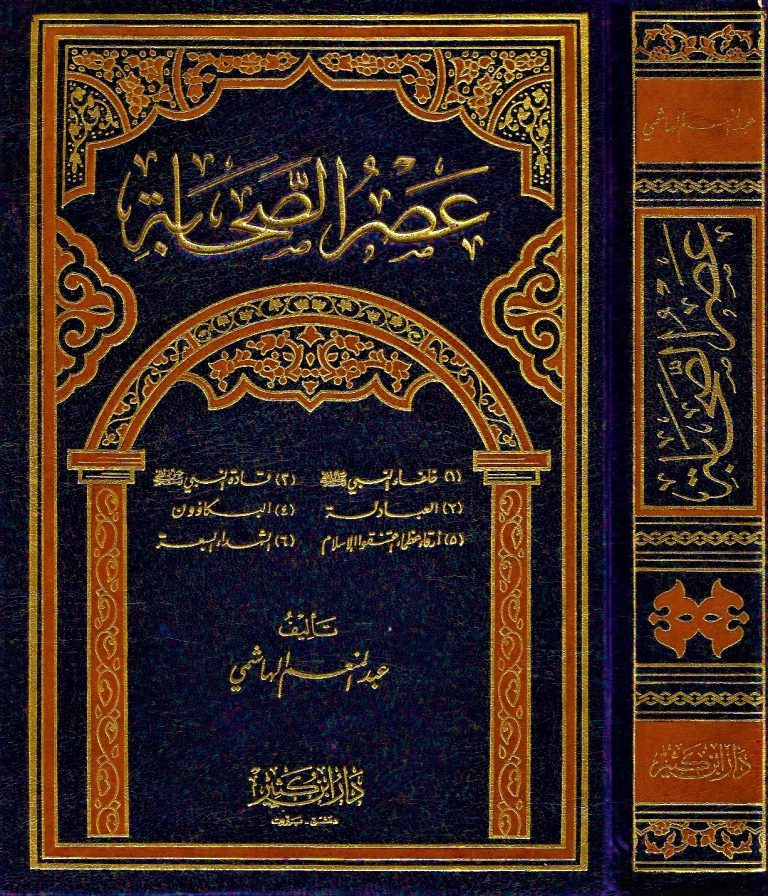 عَصْرُ الصَّحَابَةِ
(١) خلفاء النبي ﷺ (٢) قادة النبي ﷺ
(٣) العبادلة (٤) البكاؤون
(٥) أرقاء عظام اعتنقوا الإسلام (٦) الشهداء السبعة
تأليفُ
عبد المنعم الهاشمي
دار ابن كثير
دمشق - بيروت
عبد المنعم الهاشمي
عَصْرُ الصَّحَابَةِ
دار ابن كثير